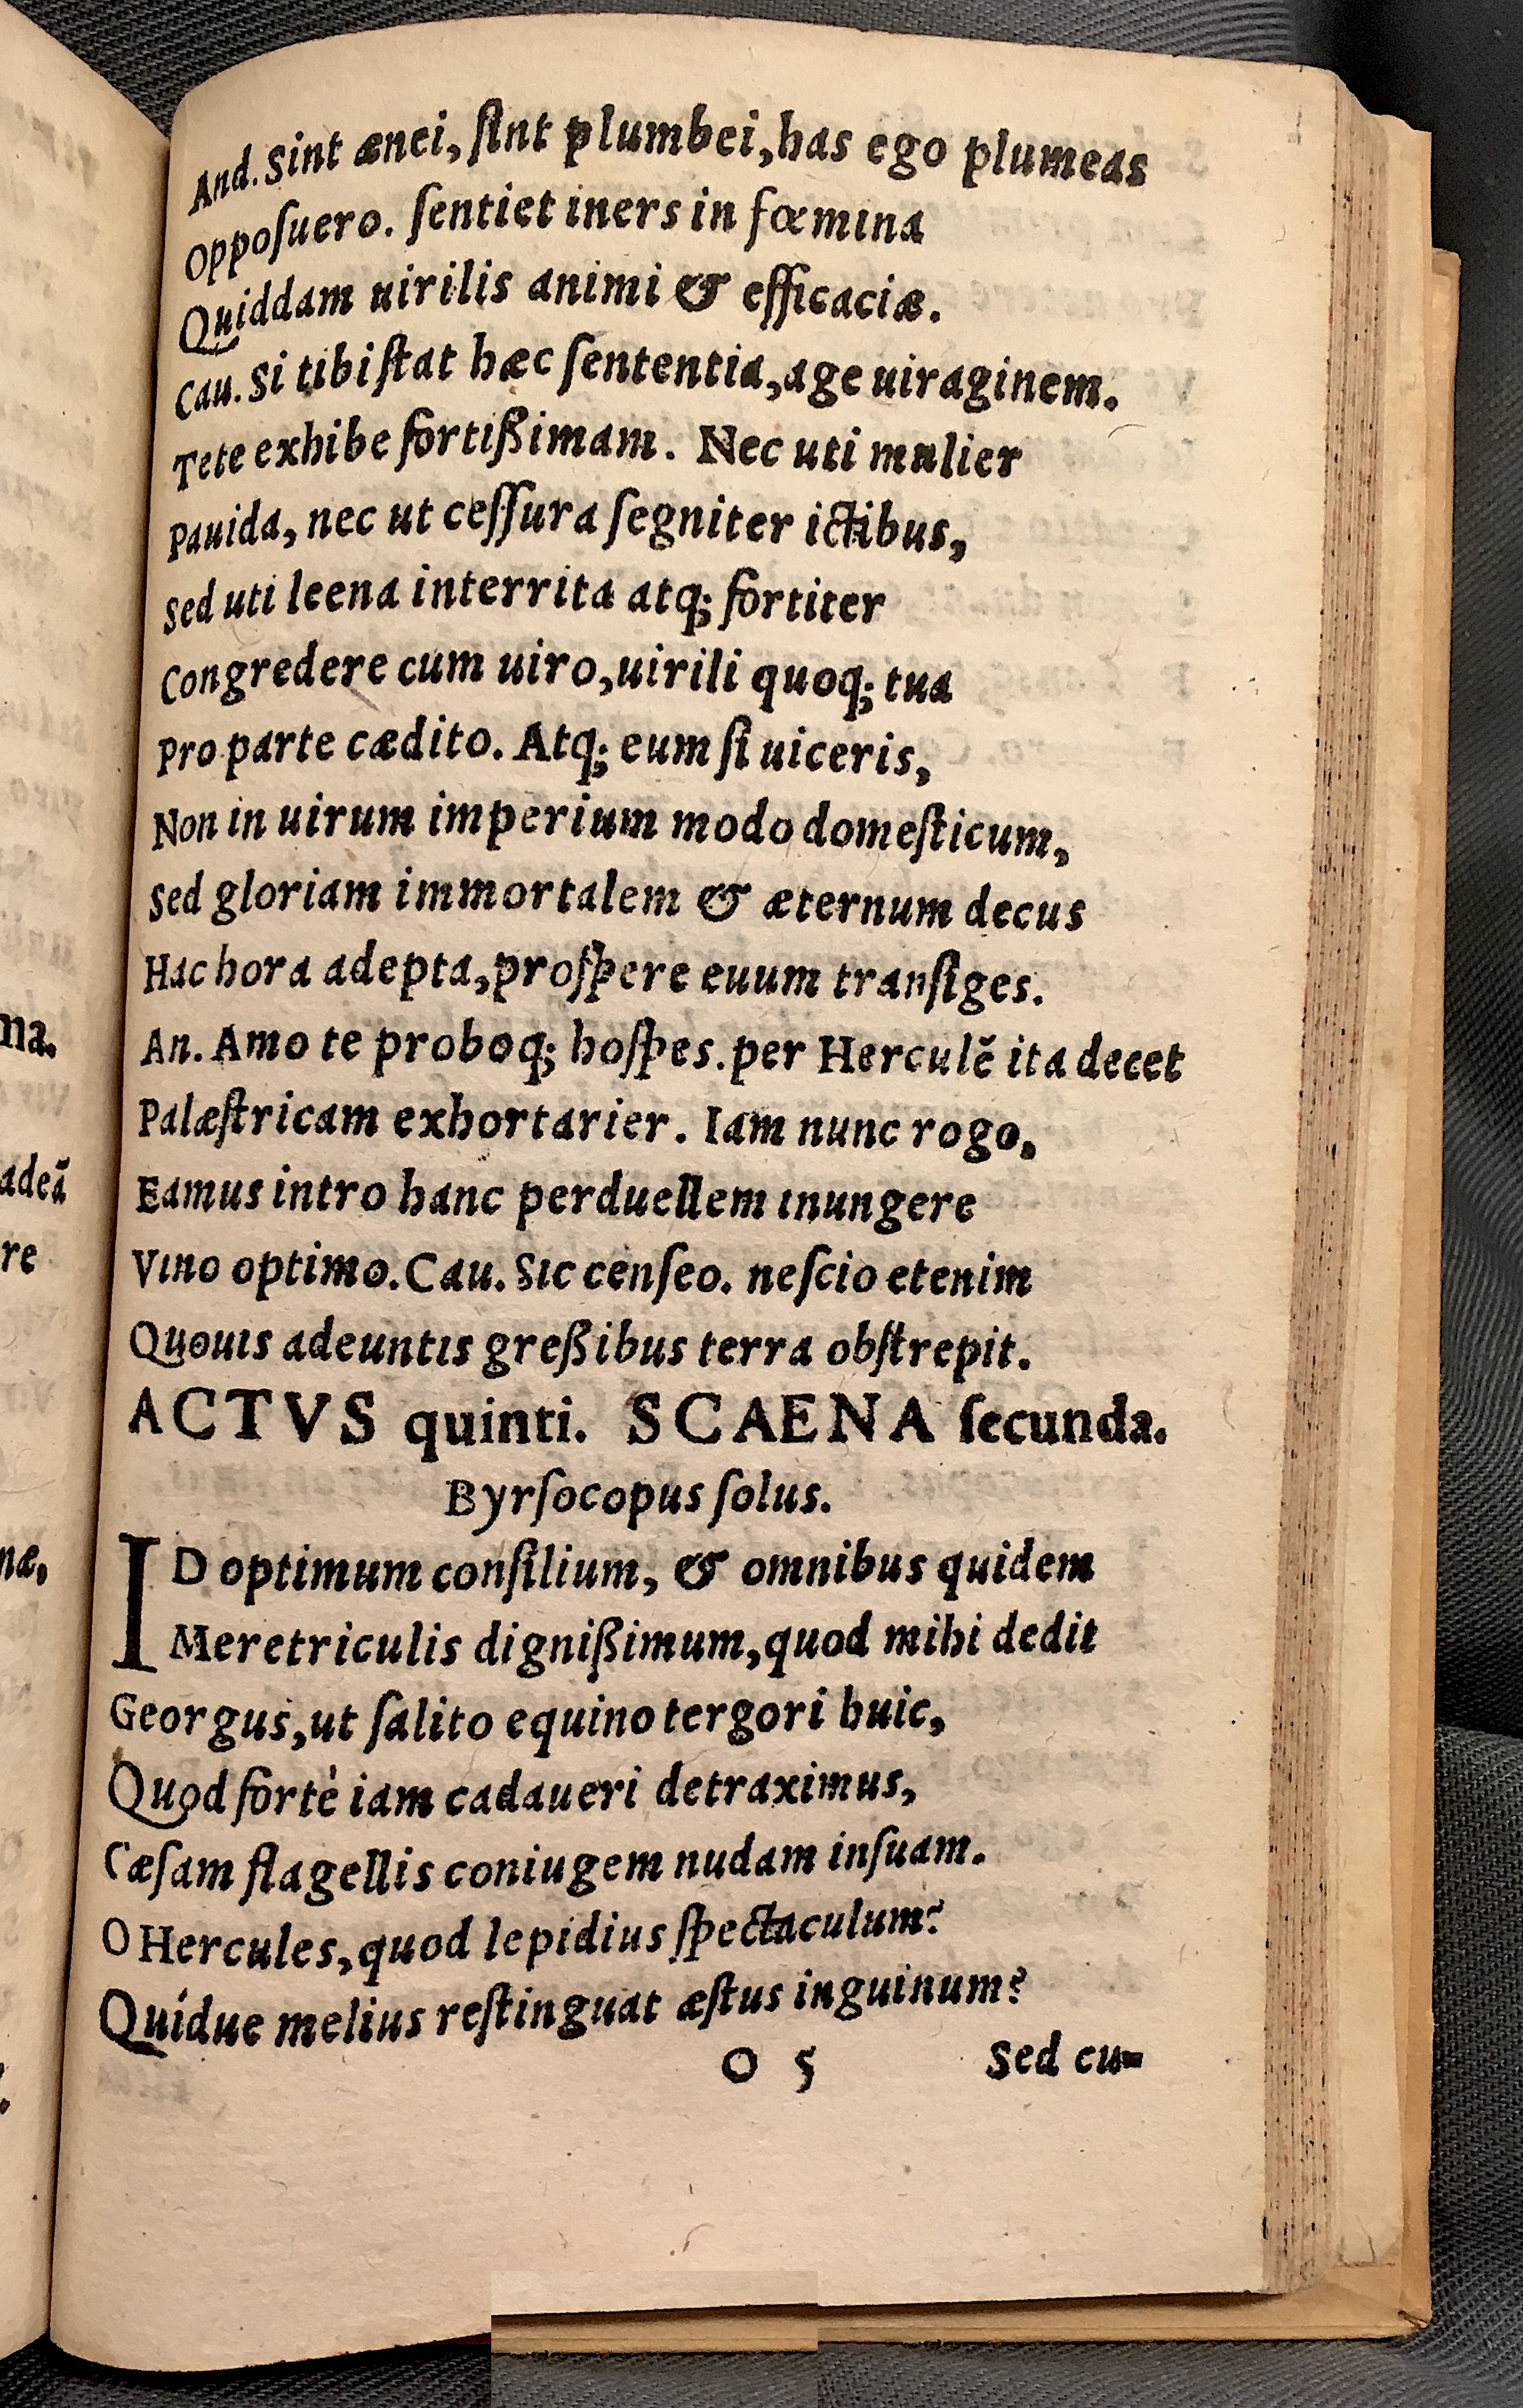 And. Sint ænei, ſint plumbei, has ego plumeas
Oppoſuero. ſentiet iners in fœmina
Quiddam uirilis animi & efficaciæ.
Cau. Si tibi ſtat hæc ſententia, age uiraginem.
Tete exhibe fortißimam. Nec uti mulier
Pauida, nec ut ceſſura ſegniter ictibus,
Sed uti leena interrita atq; fortiter
Congredere cum uiro, uirili quoq; tua
Pro parte cædito. Atq; eum ſi uiceris,
Non in uirum imperium modo domeſticum,
Sed gloriam immortalem & æternum decus
Hac hora adepta, proſpere euum tranſiges.
An. Amo te proboq; hoſpes. per Herculẽ ita decet
Palæſtricam exhortarier. Iam nunc rogo,
Eamus intro hanc perduellem inungere
Vino optimo. Cau. Sic cenſeo. neſcio etenim
Quouis adeuntis greßibus terra obſtrepit.
ACTVS quinti. SCAENA ſecunda.
Byrſocopus ſolus.
ID optimum conſilium, & omnibus quidem
Meretriculis dignißimum, quod mihi dedit
Georgus, ut ſalito equino tergori huic,
Quod fortè iam cadaueri detraximus,
Cæſam flagellis coniugem nudam inſuam.
O Hercules, quod lepidius ſpectaculum?
Quídue melius reſtinguat æſtus inguinum?
O 5 Sed cu-
na.
adeã
re
næ,